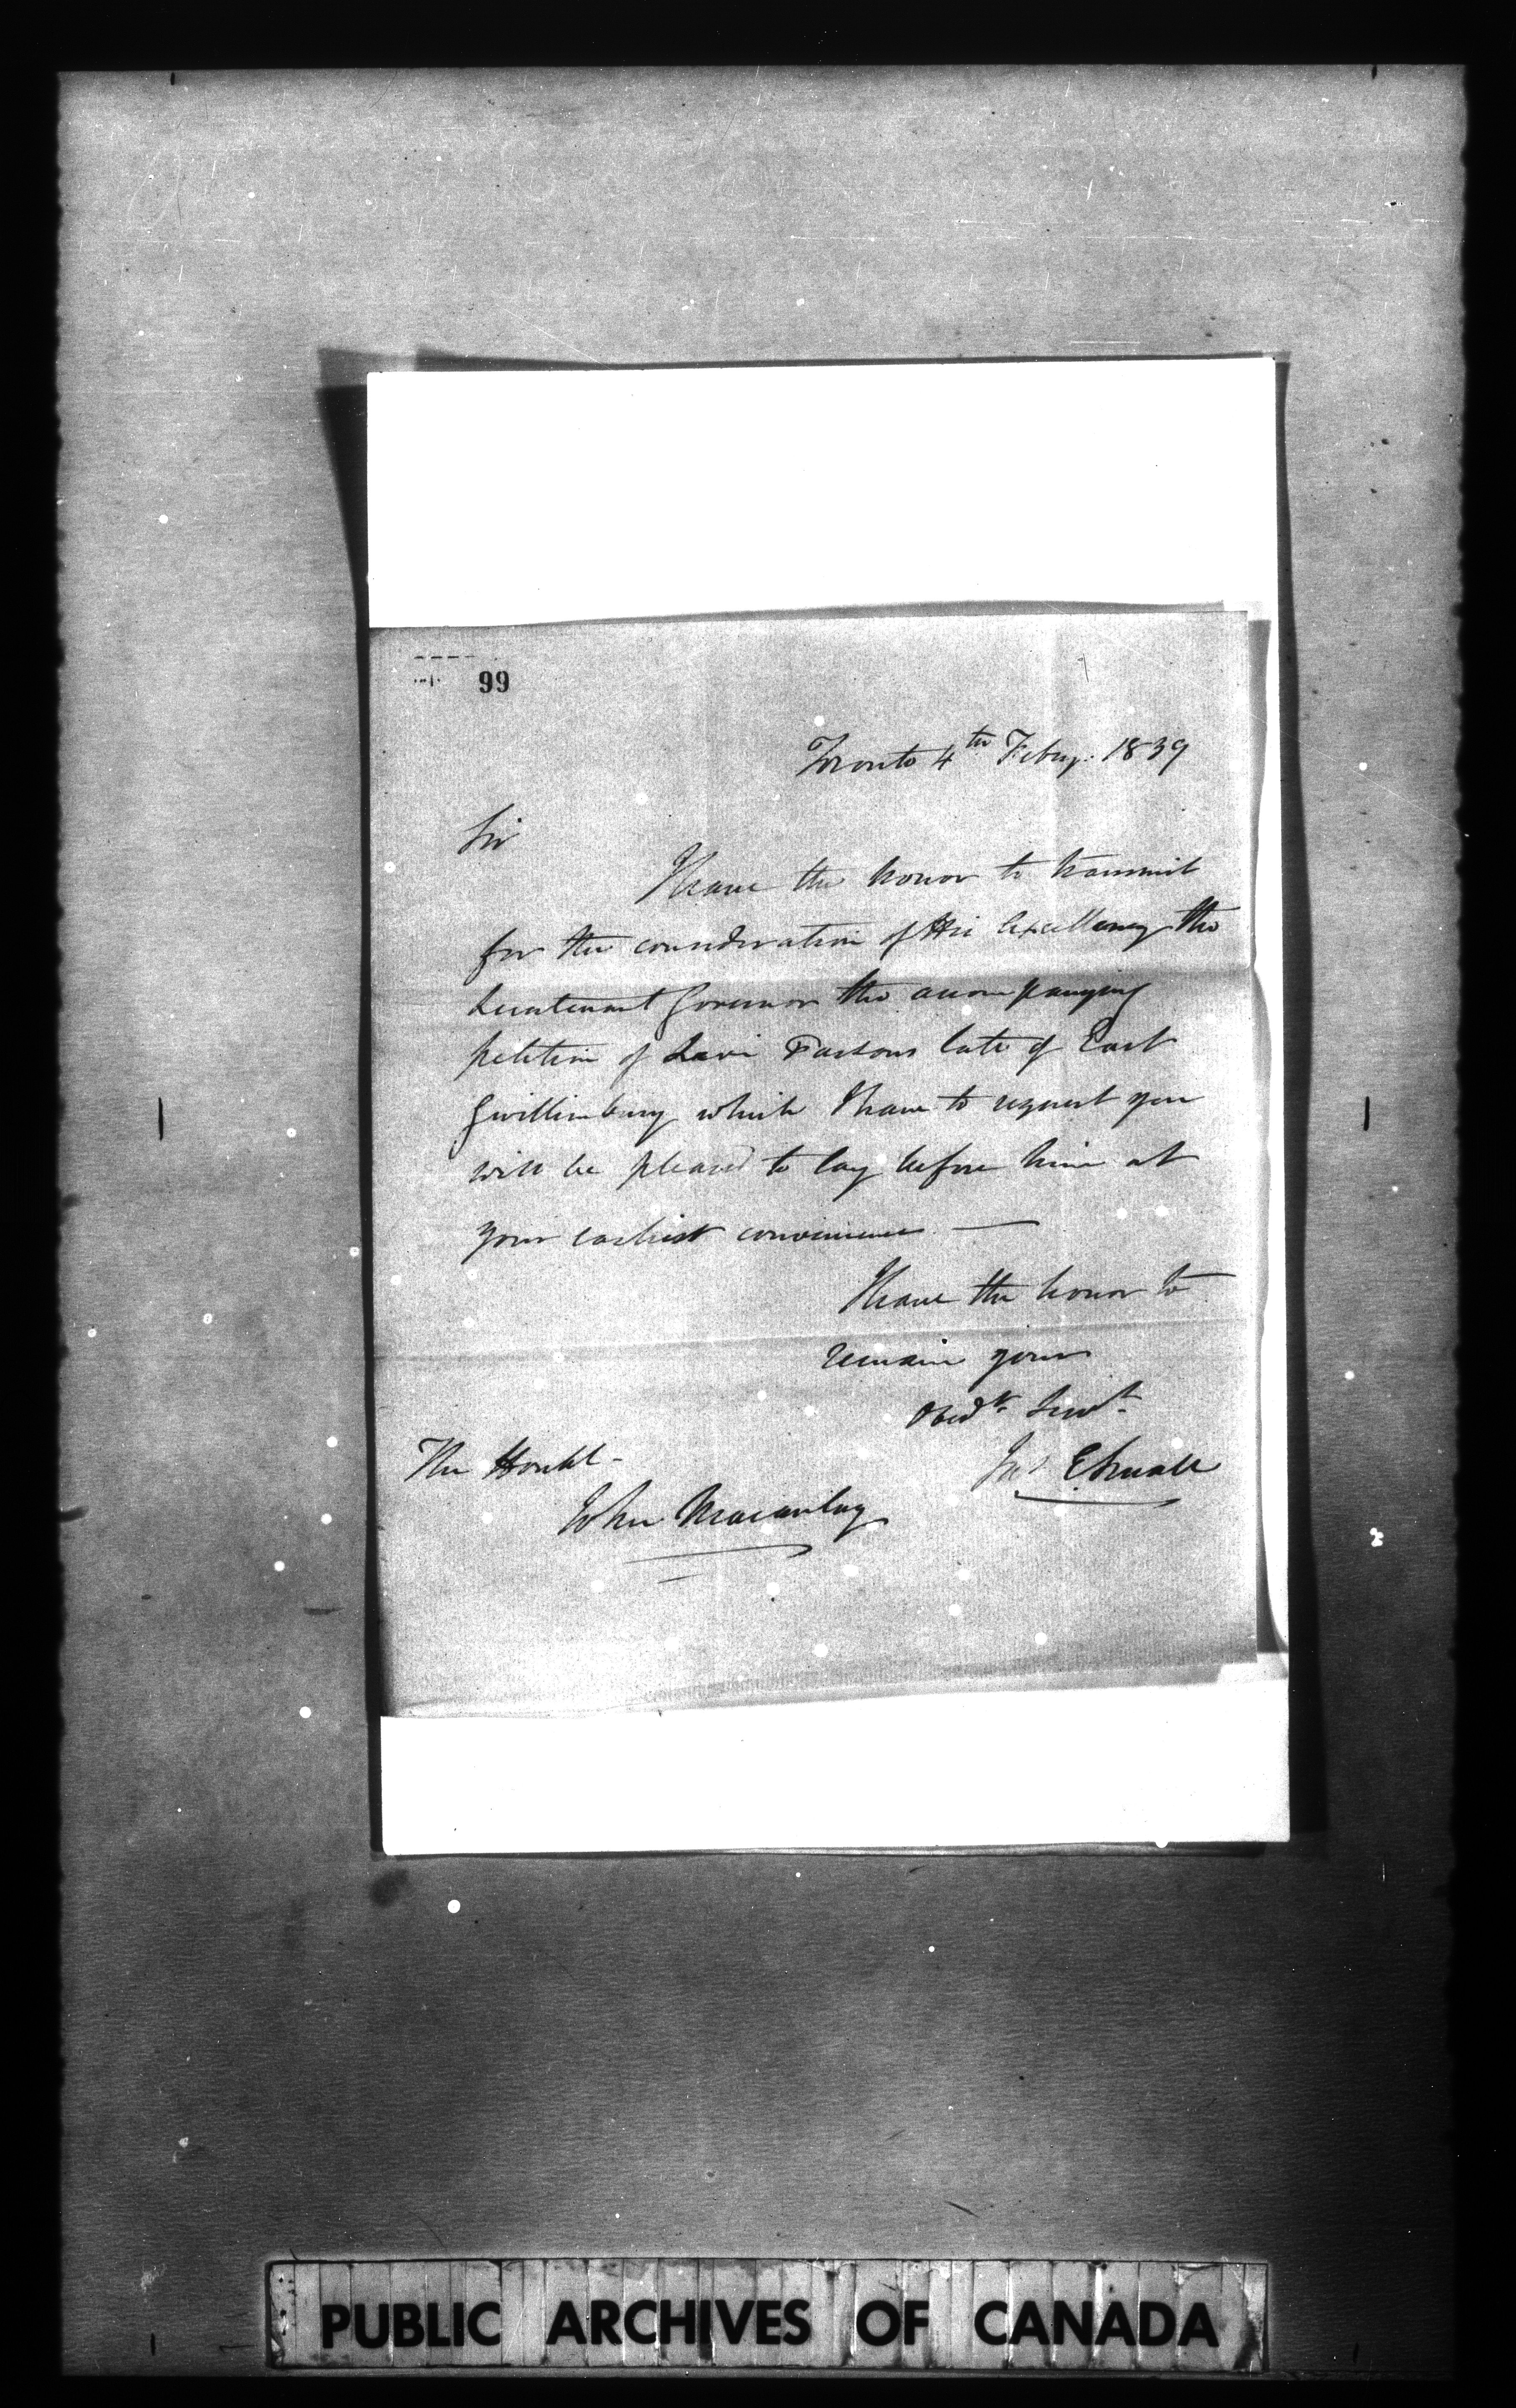 99
Toronto 4th Feby. 1839
Sir
I have the honor to transmit
for the consideration of His Excellency the
Lieutenant Governor the accompanying
petition of Levi Parsons late of East
Gwillimbury which I have to request you
will be pleased to lay before him at
your earliest convenience —
I have the honor to
remain your
Obedt. Servt.
Jas. E Small
The Honbl.
John Macaulay
PUBLIC ARCHIVES OF CANADA